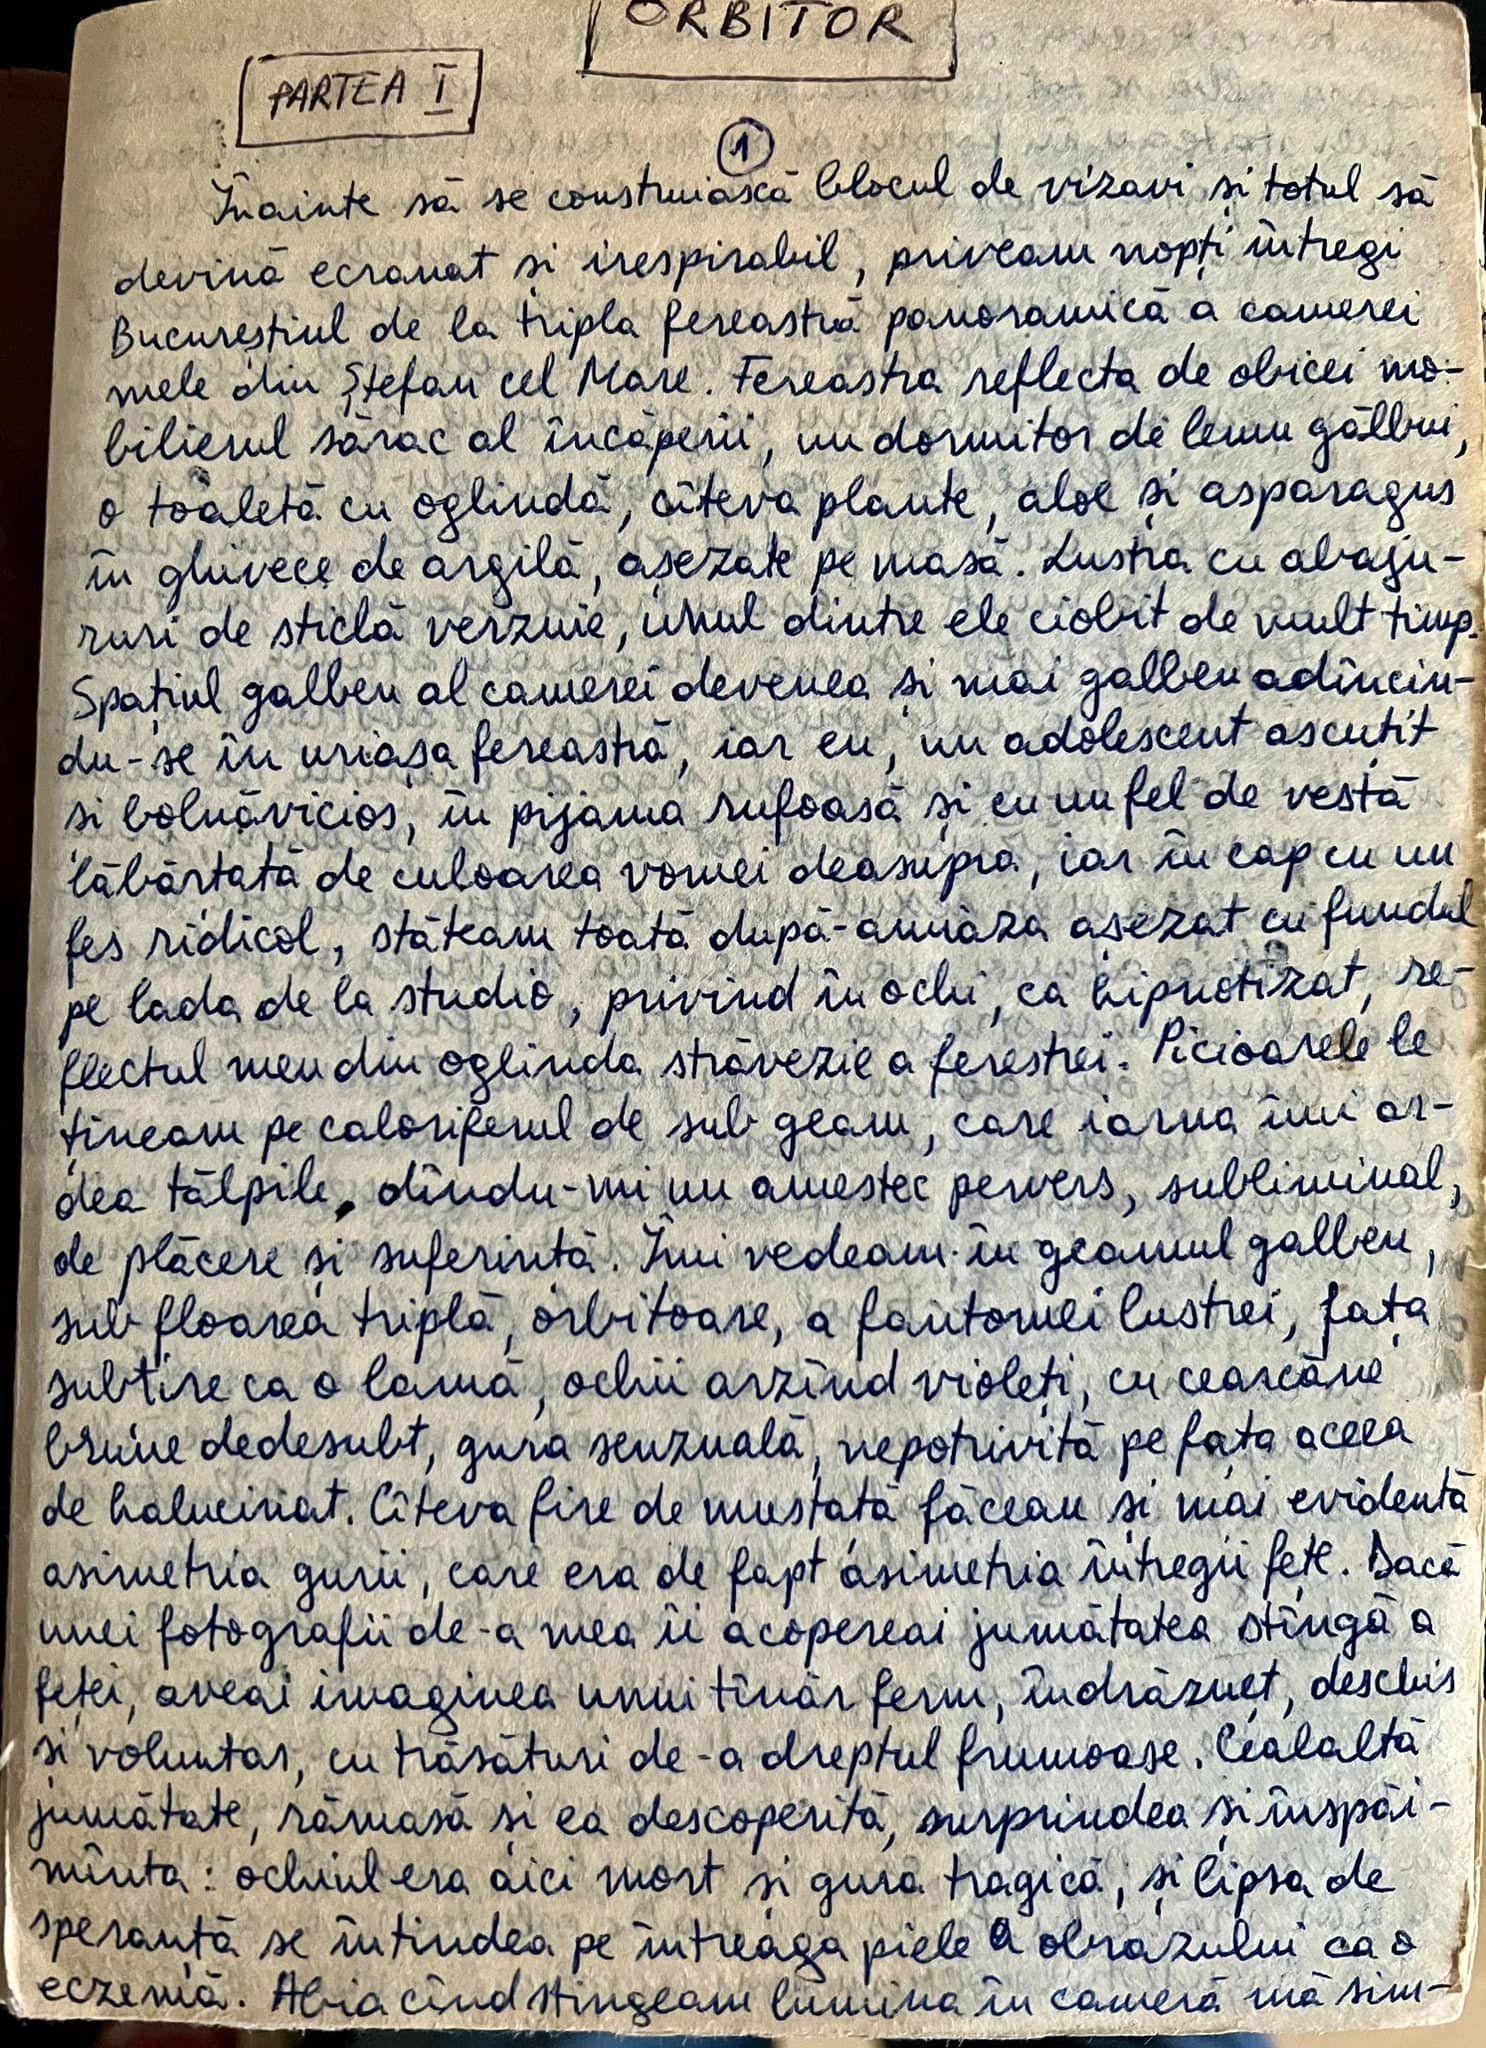 ORBITOR
PARTEA I
1
Înainte să se construiască blocul de vizavi și totul să
devină ecranat și irespirabil, priveam nopți întregi
Bucureștiul de la tripla fereastră panoramică a camerei
mele din Ștefan cel Mare. Fereastra reflecta de obicei mo-
bilierul sărac al încăperii, un dormitor de lemn gălbui,
o toaletă cu oglindă, cîteva plante, aloe și asparagus
în ghivece de argilă, așezate pe masă. Lustra cu abaju-
ruri de sticlă verzuie, unul dintre ele ciobit de mult timp.
Spațiul galben al camerei devenea și mai galben adîncin-
du-se în uriașa fereastră, iar eu, un adolescent ascuțit
și bolnăvicios, în pijama rufoasă și cu un fel de vestă
lăbărțată de culoarea vomei deasupra, iar în cap cu un
fes ridicol, stăteam toată după-amiaza așezat cu fundul
pe lada de la studio, privind în ochi, ca hipnotizat, re-
flectul meu din oglinda străvezie a ferestrei. Picioarele le
țineam pe caloriferul de sub geam, care iarna îmi ar-
dea tălpile, dîndu-mi un amestec pervers, subliminal,
de plăcere și suferință. Îmi vedeam în geamul galben,
sub floarea triplă, orbitoare, a fantomei lustrei, fața
subțire ca o lamă, ochii arzînd violeți, cu cearcăne
brune dedesubt, gura senzuală, nepotrivită pe fața aceea
de halucinat. Cîteva fire de mustață făceau și mai evidentă
asimetria gurii, care era de fapt asimetria întregii fețe. Dacă
unei fotografii de-a mea îi acopereai jumătatea stîngă a
feței, aveai imaginea unui tînăr ferm, îndrăzneț, deschis
și voluntar, cu trăsături de-a dreptul frumoase. Cealaltă
jumătate, rămasă și ea descoperită, surprindea și înspăi-
mînta: ochiul era aici mort și gura tragică, și lipsa de
speranță se întindea pe întreaga piele a obrazului ca o
eczemă. Abia cînd stingeam lumina în cameră mă sim-